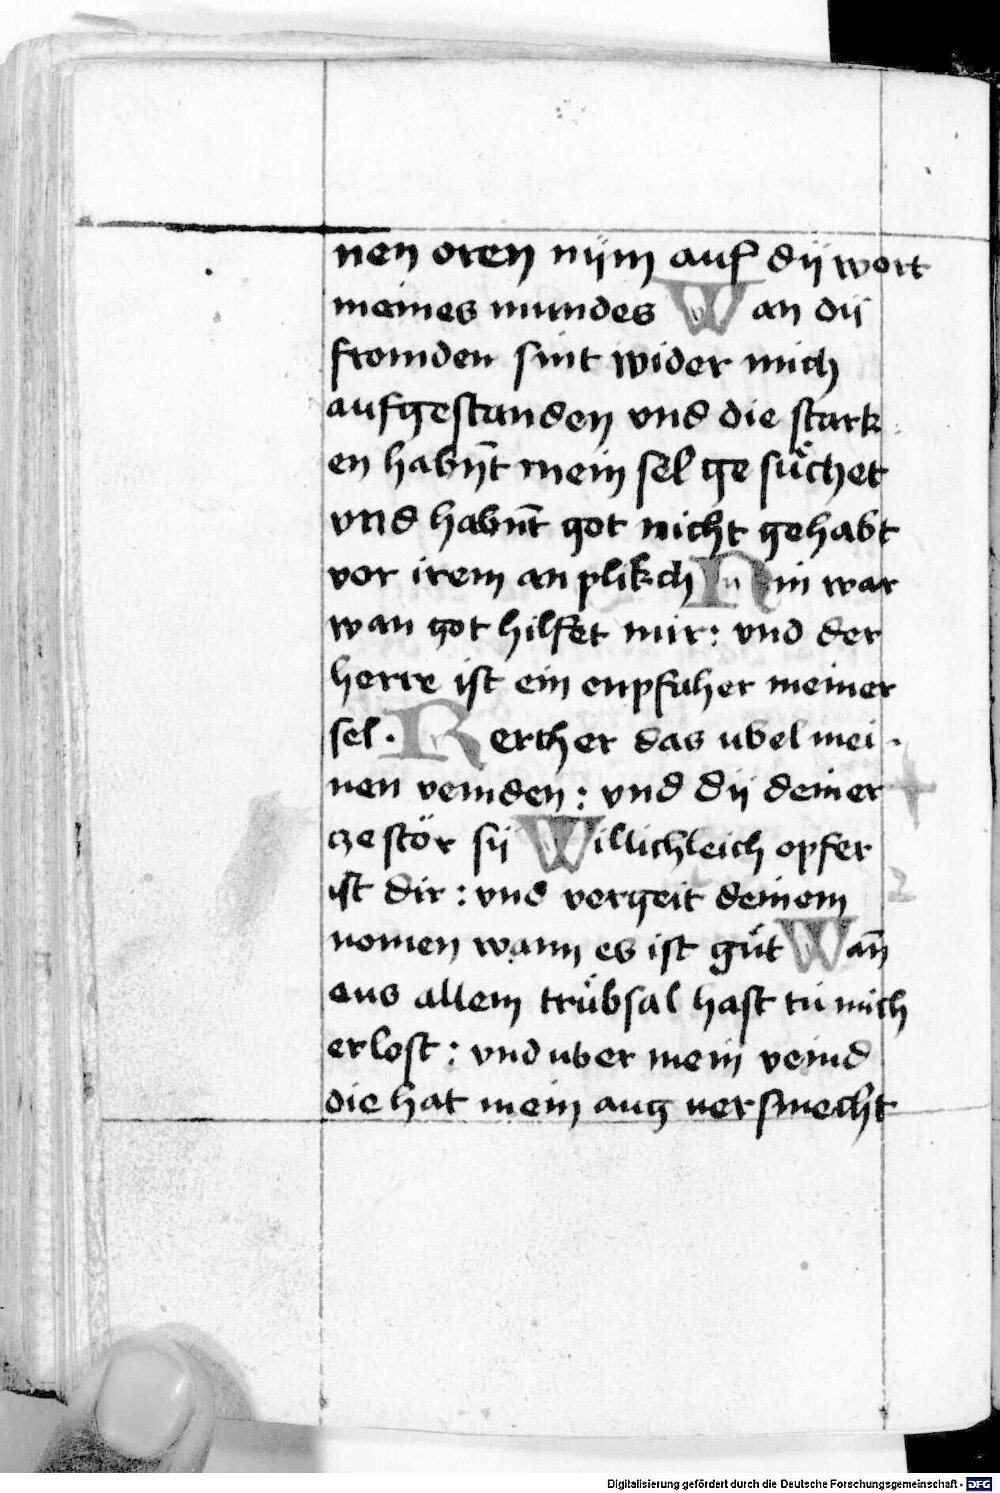 nen oren nÿm auf dÿ wort
meines mundes Wan dÿ
fromden sint wider mich
aufgestanden vnd die stark
en habn̄t mein sel ge suͤchet
vnd habn̄t got nicht gehabt
vor irem an plikch Nim war
wan got hilfet mir: vnd der
herre ist ein enpfaher meiner
sel. Kerther das ubel mei
nen veinden: vnd dÿ deiner
cze stör sÿ Willichleich opfer
ist dir: vnd vergeit deinem
nomen wann es ist guͤt Wan̄
aus allem truͤbsal hast tu mich
erlost: vnd uber mein veind
die hat mein aug versmecht
Digitalisierung gefördert durch die Deutsche Forschungsgemeinschaft - DFG